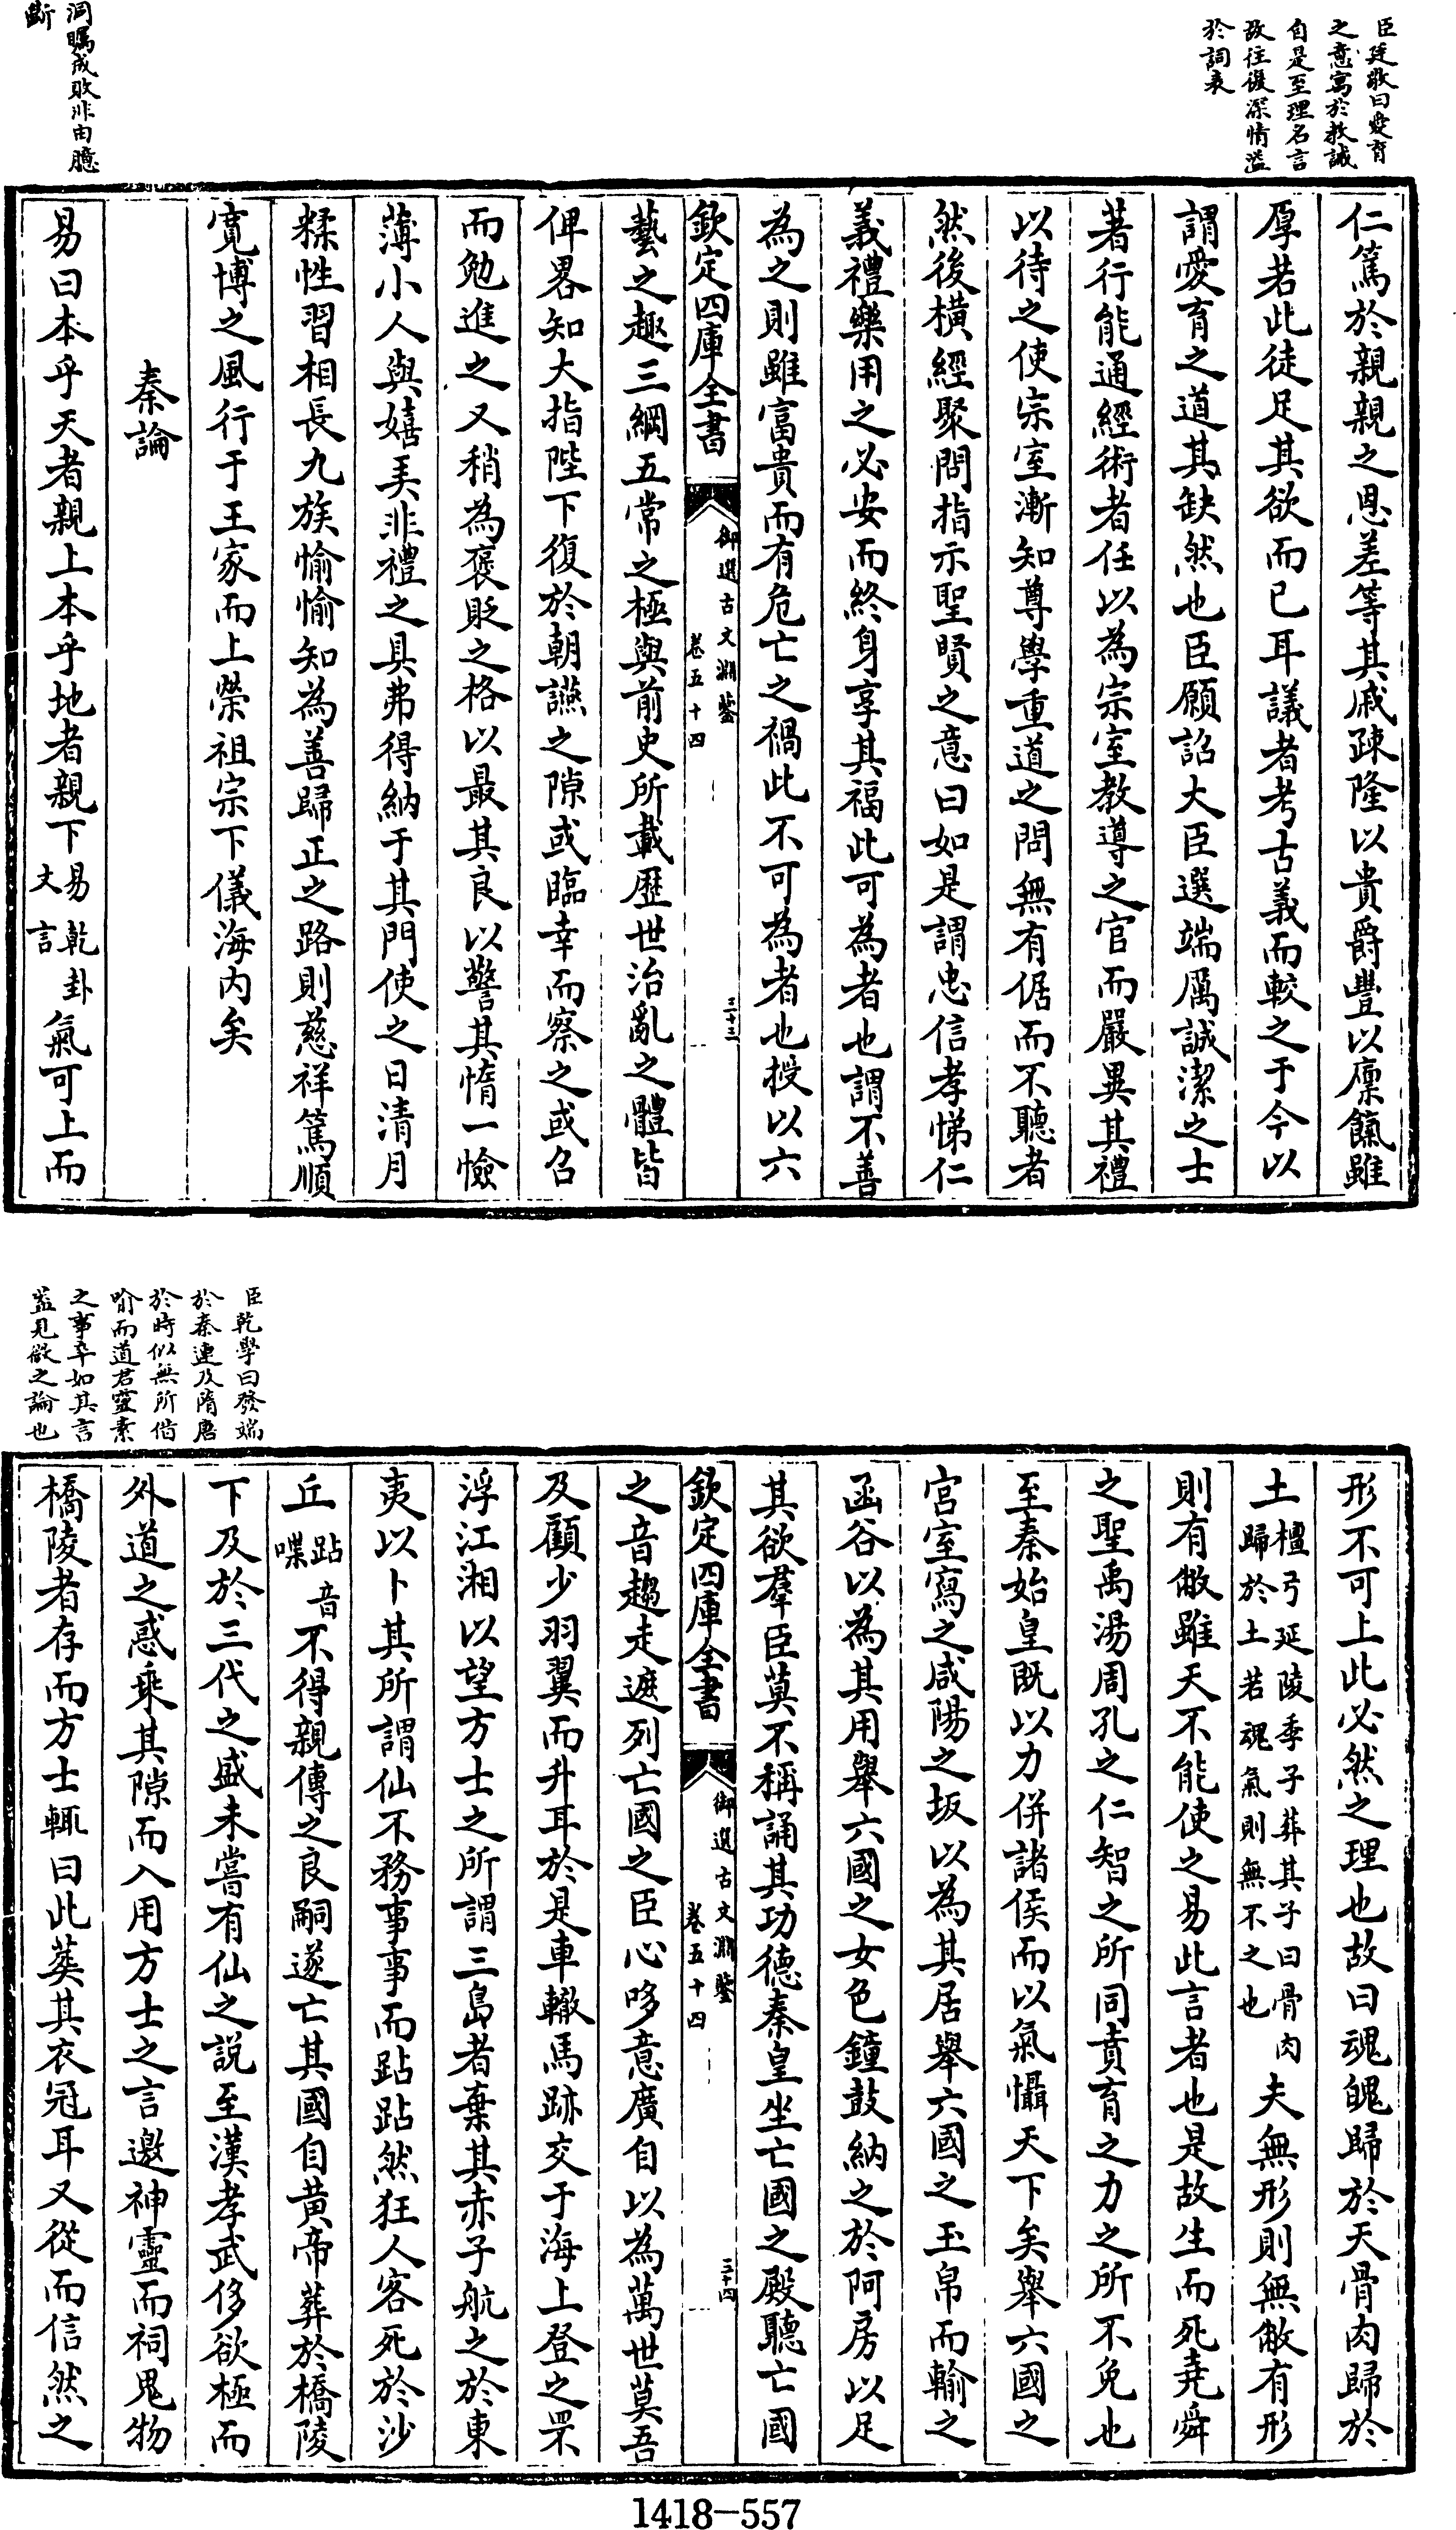 臣廷敬曰愛育
之意寓於教誡
自是至理名言
故往復深情溢
於詞表
仁篤於親親之恩差等其戚疎隆以貴爵豐以廩餼雖
厚若此徒足其欲而已耳議者考古義而較之于今以
謂愛育之道其缺然也臣願詔大臣選端厲誠潔之士
著行能通經術者任以為宗室教導之官而嚴異其禮
以待之使宗室漸知尊學重道之問無有倨而不聽者
然後橫經聚問指示聖賢之意曰如是謂忠信孝悌仁
義禮樂用之必安而終身享其福此可為者也謂不善
為之則雖富貴而有危亡之禍此不可為者也授以六
欽定四庫全書
御選古文淵鑒
卷五十四
三十三
藝之趣三綱五常之極與前史所載歷世治亂之體皆
俾畧知大指陛下復於朝讌之隙或臨幸而察之或召
而勉進之又稍為褒貶之格以最其良以警其惰一憸
薄小人與嬉美非禮之具弗得納于其門使之日清月
糅性習相長九族愉愉知為善歸正之路則慈祥篤順
寬博之風行于王家而上榮祖宗下儀海内矣
秦論
洞矚成敗非由臆
斷
易曰本乎天者親上本乎地者親下易乾卦文言氣可上而
形不可上此必然之理也故曰魂魄歸於天骨肉歸於
土檀弓延陵季子葬其子曰骨肉歸於土若魂氣則無不之也夫無形則無敝有形
則有敝雖天不能使之易此言者也是故生而死堯舜
之聖禹湯周孔之仁智之所同賁育之力之所不免也
至秦始皇既以力併諸侯而以氣懾天下矣舉六國之
宮室寫之咸陽之坂以為其居舉六國之玉帛而輸之
函谷以為其用舉六國之女色鐘鼓納之於阿房以足
其欲羣臣莫不稱誦其功德秦皇坐亡國之殿聽亡國
欽定四庫全書
御選古文淵鑒
卷五十四
三十四
之音趨走遮列亡國之臣心哆意廣自以為萬世莫吾
及顧少羽翼而升耳於是車轍馬跡交于海上登之罘
浮江湘以望方士之所謂三島者棄其赤子航之於東
夷以卜其所謂仙不務事事而跕跕然狂人客死於沙
丘跕音喋不得親傳之良嗣遂亡其國自黄帝葬於橋陵
臣乾學曰發端
於秦連及隋唐
於時似無所借
喻而道君靈素
之事卒如其言
葢見微之論也
下及於三代之盛未嘗有仙之說至漢孝武侈欲極而
外道之惑乘其隙而入用方士之言邀神靈而祠鬼物
橋陵者存而方士輒曰此葬其衣冠耳又從而信然之
1418-557